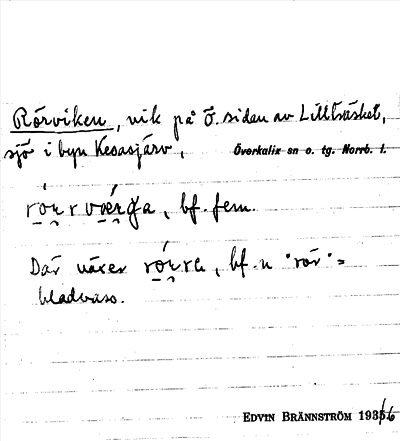 Rörviken, vik på ö. sidan av Lillträsket,
sjö i byn Kesasjärv, Överkalix sn o. tg. Norrb. l.
bf. fem.
Där växer bf. n "rör" =
bladvass.
EDVIN BRÄNNSTRÖM 1935/6